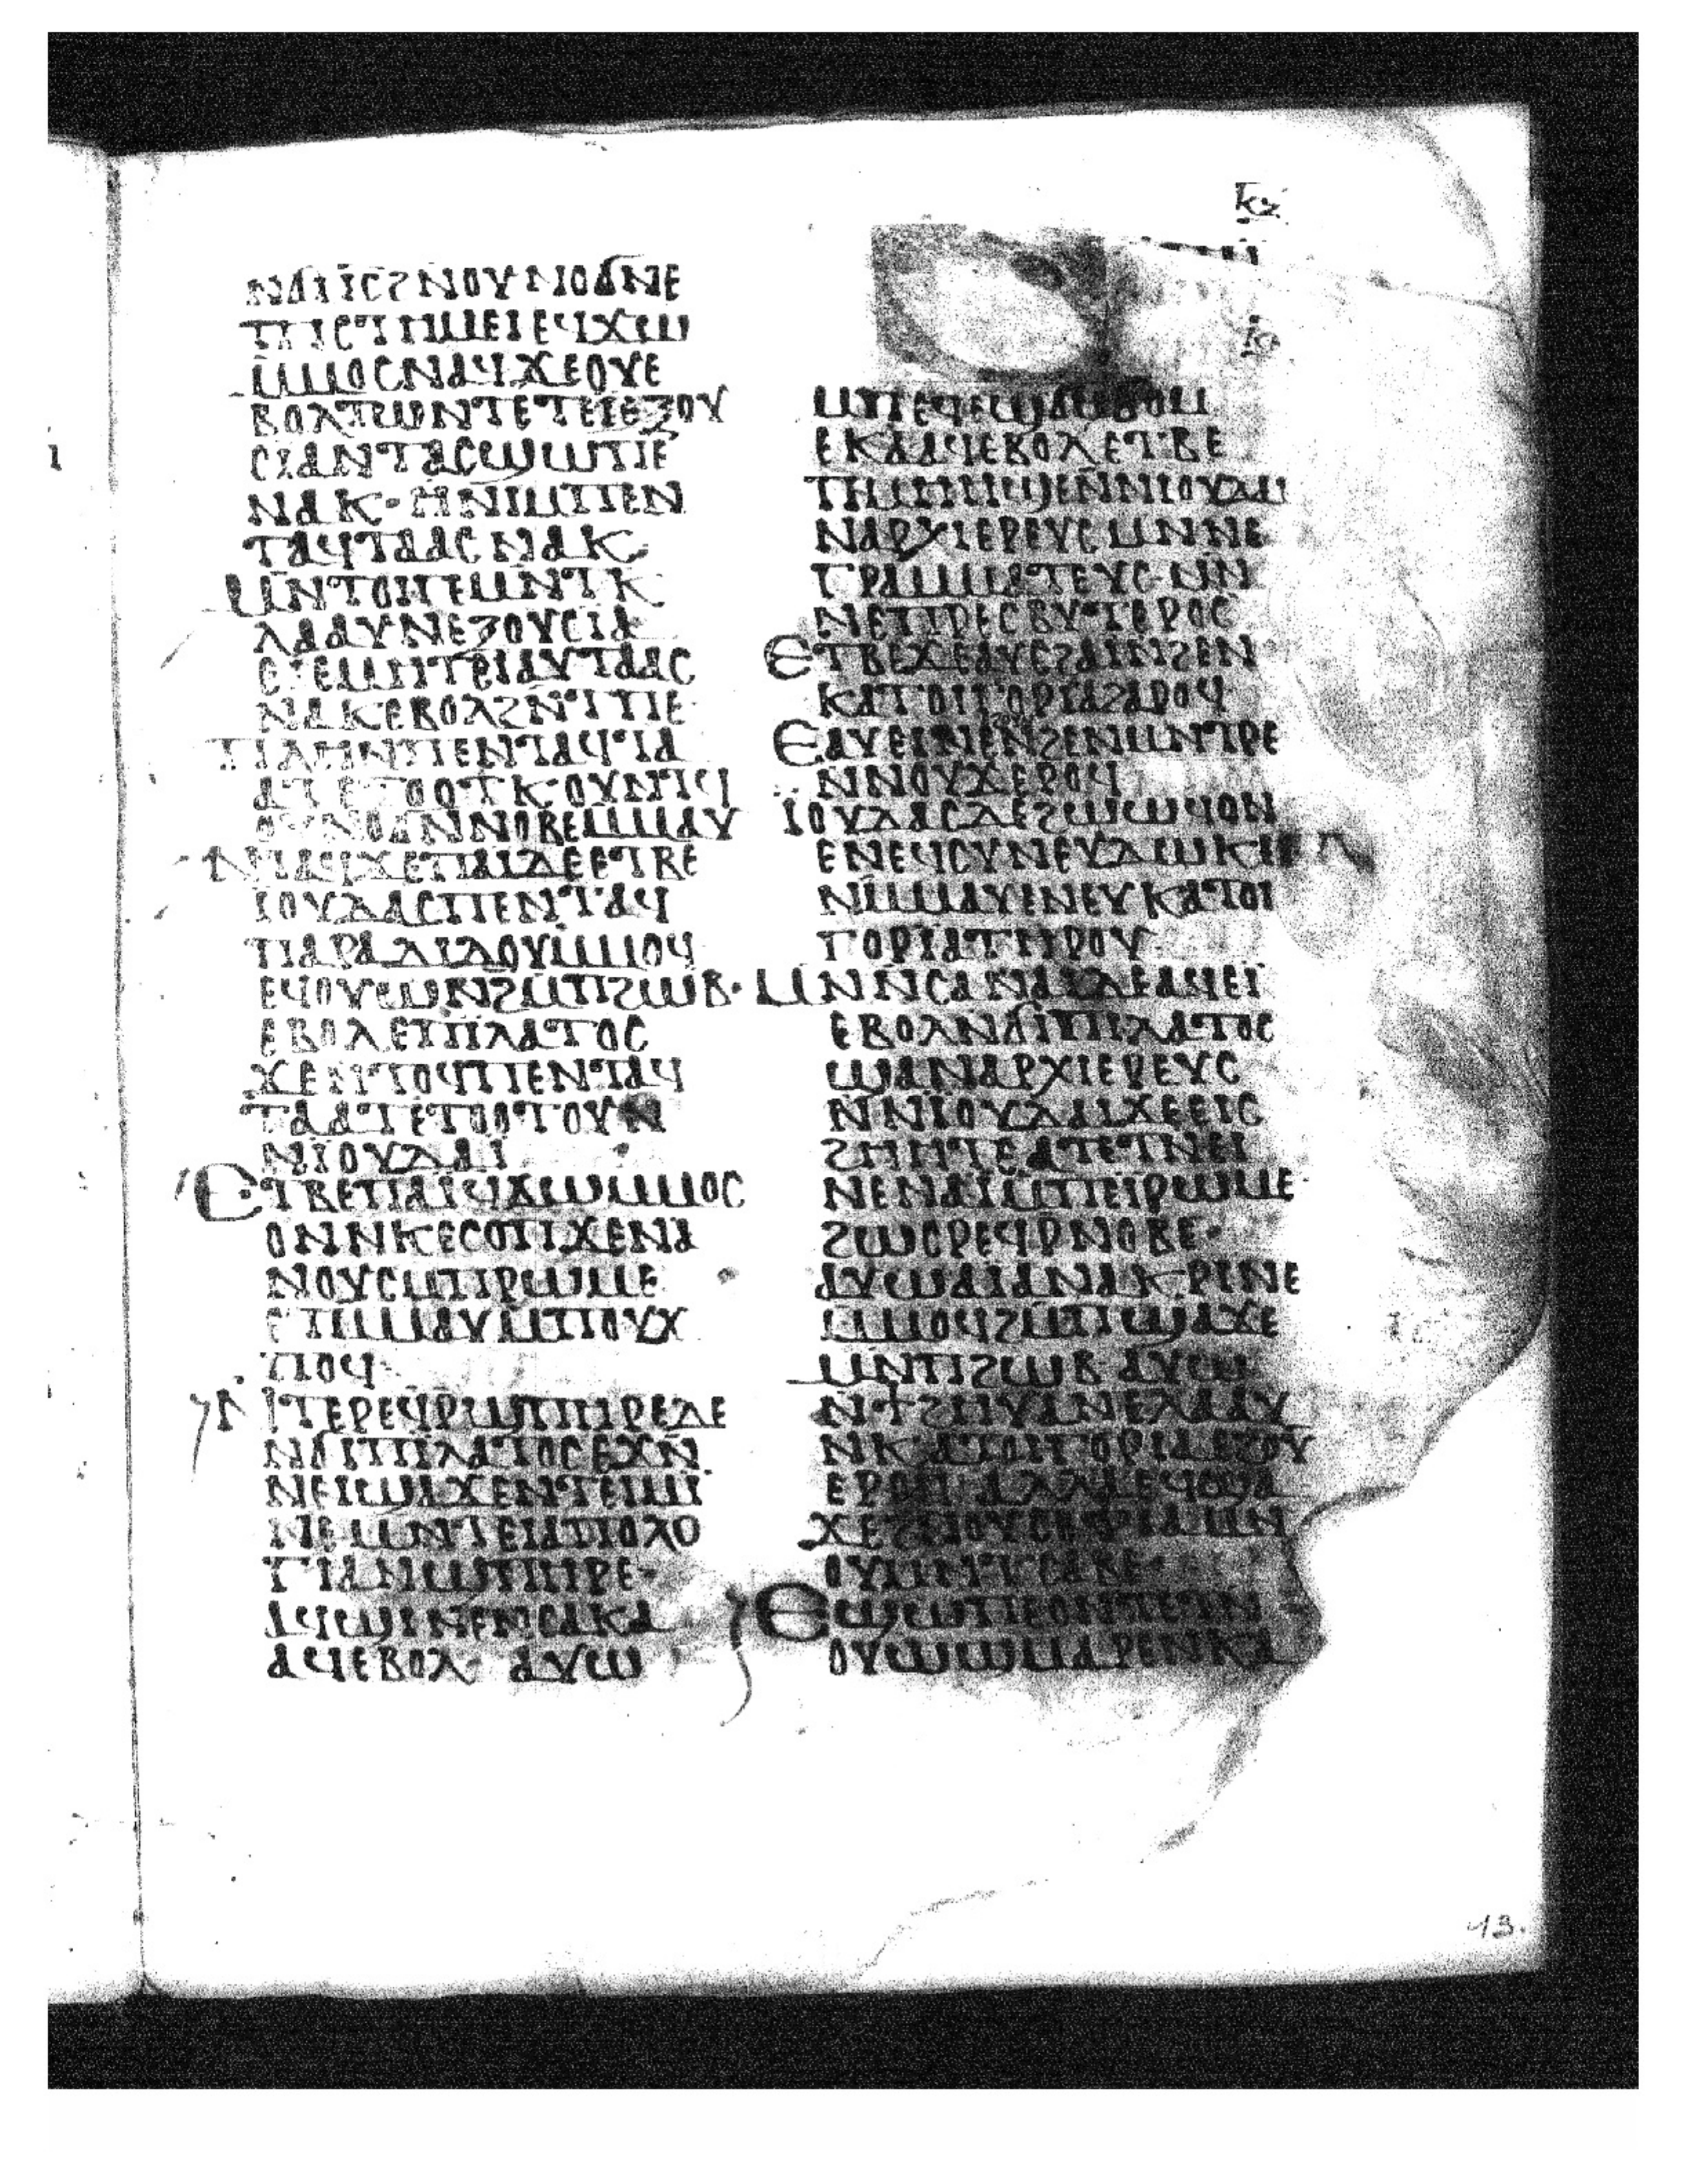 ⲛϭⲓ ⲓ̅ⲥ̅ ϩⲛⲟⲩⲛⲟϭ ⲛⲉ
ⲡⲓⲥⲧⲏⲙⲉⲓ ⲉϥϫⲱ
ⲙ̅ⲙⲟⲥ ⲛⲁϥ ϫⲉ ⲟⲩⲉ
ⲃⲟⲗ ⲧⲱⲛ ⲧⲉ ⲧⲉⲓⲉⲝⲟⲩ
ⲥⲓⲁ ⲛⲧⲁⲥϣⲱⲡⲉ
ⲛⲁⲕ· ⲏ ⲛⲓⲙ ⲡⲉⲛ
ⲧⲁϥⲧⲁⲁⲥ ⲛⲁⲕ
ⲙⲛⲧⲟⲓⲡⲉ ⲙⲛⲧⲕ
ⲗⲁⲁⲩ ⲛⲉⲝⲟⲩⲥⲓⲁ
ⲉⲓⲉⲙⲏⲧⲉⲓ ⲁⲩⲧⲁⲁⲥ
ⲛⲁⲕ ⲉⲃⲟⲗ ϩⲛⲧⲡⲉ
ⲡⲁⲏⲛ ⲡⲉⲛⲧⲁϥⲧⲁ
ⲁⲧ ⲉⲧⲟⲟⲧⲕ ⲟⲩⲛⲧϥ
ⲟⲩⲛⲟϭ ⲛⲛⲟⲃⲉ ⲙⲙⲁⲩ
ⲛⲧⲁϥϫⲉ ⲡⲁⲓ ⲇⲉ ⲉⲧⲃⲉ
ⲓⲟⲩⲇⲁⲥ ⲡⲉⲛⲧⲁϥ
ⲡⲁⲣⲁⲇⲓⲇⲟⲩ ⲙ̅ⲙⲟϥ
ⲉϥⲟⲩⲱⲛϩ ⲙⲡϩⲱⲃ·
ⲉⲃⲟⲗ ⲉⲡⲓⲗⲁⲧⲟⲥ
ϫⲉ ⲛⲧⲟϥ ⲡⲉⲛⲧⲁϥ
ⲧⲁⲁⲧ ⲉⲧⲟⲟⲧⲟⲩ ⲛ
ⲛⲓⲟⲩⲇⲁⲓ
ⲉⲧⲃⲉ ⲡⲁⲓ ϥϫⲱ ⲙⲙⲟⲥ
ⲟⲛ ⲛⲕⲉⲥⲟⲡ ϫⲉ ⲛⲁ
ⲛⲟⲩⲥ ⲙⲡⲣⲱⲙⲉ
ⲉⲧⲙⲙⲁⲩ ⲙⲡⲟⲩϫ
ⲡⲟϥ·
ⲛⲧⲉⲣⲉϥⲣϣⲡⲏⲣⲉ ⲇⲉ
ⲛϭⲓ ⲡⲓⲗⲁⲧⲟⲥ ⲉϫⲛ
ⲛⲉⲓϣⲁϫⲉ ⲛⲧⲉⲓⲙⲓ
ⲛⲉ ⲙⲛⲧⲉⲓⲁⲡⲟⲗⲟ
ⲅⲓⲁ ⲛϣⲡⲏⲣⲉ·
ⲁϥϣⲓⲛⲉ ⲛⲥⲁ ⲕⲁ
ⲁϥ ⲉⲃⲟⲗ· ⲁⲩⲱ
ⲙⲡⲉϥⲉϣϭⲙϭⲟⲙ
ⲉⲕⲁⲁϥ ⲉⲃⲟⲗ ⲉⲧⲃⲉ
ⲧⲙⲏⲏϣⲉ ⲛⲛⲓⲟⲩⲇⲁⲓ
ⲛⲁⲣⲭⲓⲉⲣⲉⲩⲥ ⲙⲛ ⲛⲉ
ⲅⲣⲁⲙⲙⲁⲧⲉⲩⲥ· ⲙⲛ
ⲛⲉⲡⲣⲉⲥⲃⲩⲧⲉⲣⲟⲥ
ⲉⲧⲃⲉ ϫⲉ ⲁⲩⲥϩⲁⲓ ⲛϩⲉⲛ
ⲕⲁⲧⲟⲓⲅⲟⲣⲓⲁ ϩⲁⲣⲟϥ
ⲉⲁⲩⲉⲓⲛⲉ ⲛϩⲉⲛⲙⲛⲧⲣⲉ
ⲛⲛⲟⲩϫ ⲉⲣⲟϥ
ⲓⲟⲩⲇⲁⲥ ⲇⲉ ϩⲱⲱϥ ⲟⲛ
ⲉⲛⲉϥⲥⲩⲛⲉⲩⲇⲱⲕⲓ
ⲛⲙⲙⲁⲩ ⲉⲛⲉⲩⲕⲁⲧⲟⲓ
ⲅⲟⲣⲓⲁ ⲧⲏⲣⲟⲩ
ⲙⲛⲛⲥⲁ ⲛⲁⲓ ⲇⲉ ⲁϥⲉⲓ
ⲉⲃⲟⲗ ⲛϭⲓ ⲡⲓⲗⲁⲧⲟⲥ
ϣⲁ ⲛⲁⲣⲭⲓⲉⲣⲉⲩⲥ
ⲛⲛⲓⲟⲩⲇⲁⲓ ϫⲉ ⲉⲓⲥ
ϩⲏⲏⲧⲉ ⲁⲧⲉⲧⲛⲉⲓ
ⲛⲉ ⲛⲁⲓ ⲙⲡⲉⲓⲣⲱⲙⲉ
ϩⲱⲥ ⲣⲉϥⲣⲛⲟⲃⲉ·
ⲁⲩⲱ ⲁⲓⲁⲛⲁⲕⲣⲓⲛⲉ
ⲙⲙⲟϥ ϩⲙⲡϣⲁϫⲉ
ⲙⲛⲡϩⲱⲃ ⲁⲩⲱ
ⲛϯϩⲏⲩ ⲁⲛ ⲉⲗⲁⲁⲩ
ⲛⲕⲁⲧⲟⲓⲅⲟⲣⲓⲁ ⲉϩⲟⲩ
ⲉⲣⲟϥ ⲁⲗⲗⲁ ⲉϥϣⲁ
ϫⲉ ϩⲛⲟⲩⲥⲟⲫⲓⲁ ⲙⲛ
ⲟⲩⲙⲛⲧⲥⲁⲃⲉ·
ⲉϣⲱⲡⲉ ⲟⲛ ⲧⲉⲧⲛ
ⲟⲩⲱϣ ⲙⲁⲣⲉⲛⲕⲁ
13.